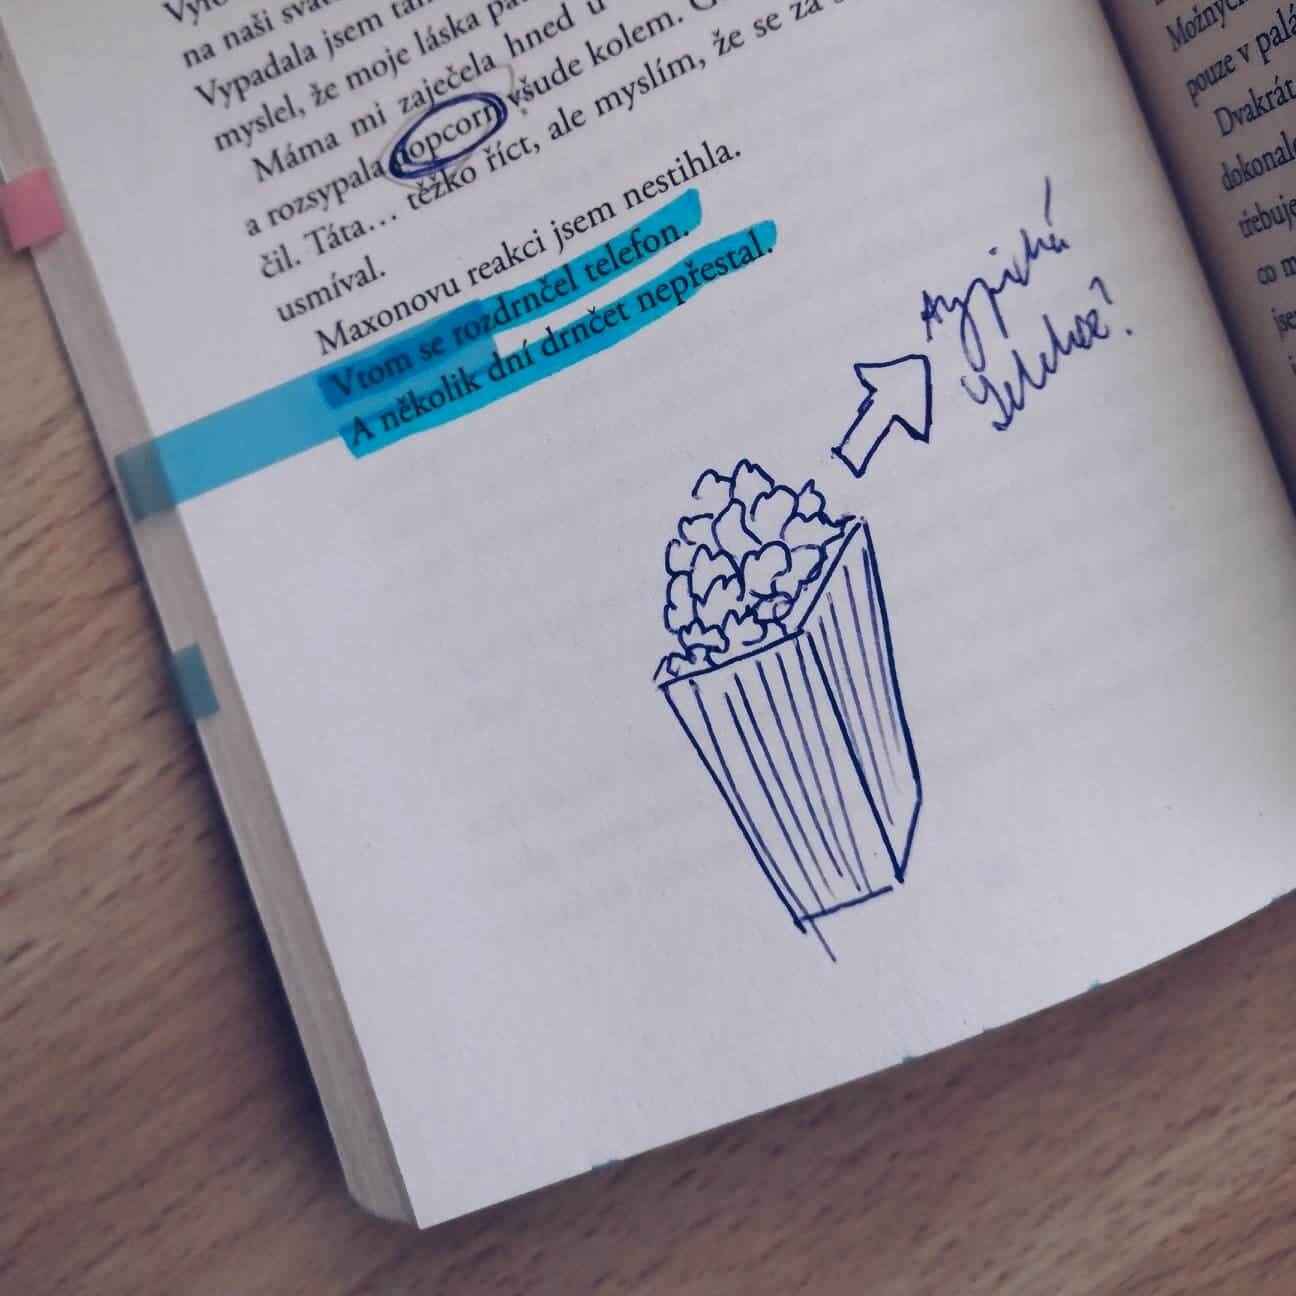 na naši
Vypadala jsem
myslel, že moje láska
Máma mi zaječela hned
a rozsypala popcorn všude kolem.
čil. Táta… těžko říct, ale myslím, že se za
usmíval.
Maxonovu reakci jsem nestihla.
Vtom se rozdrnčel telefon.
A několik dní drnčet nepřestal.
Možných
pouze v
Dvakrát
dokonale
třebuje
co